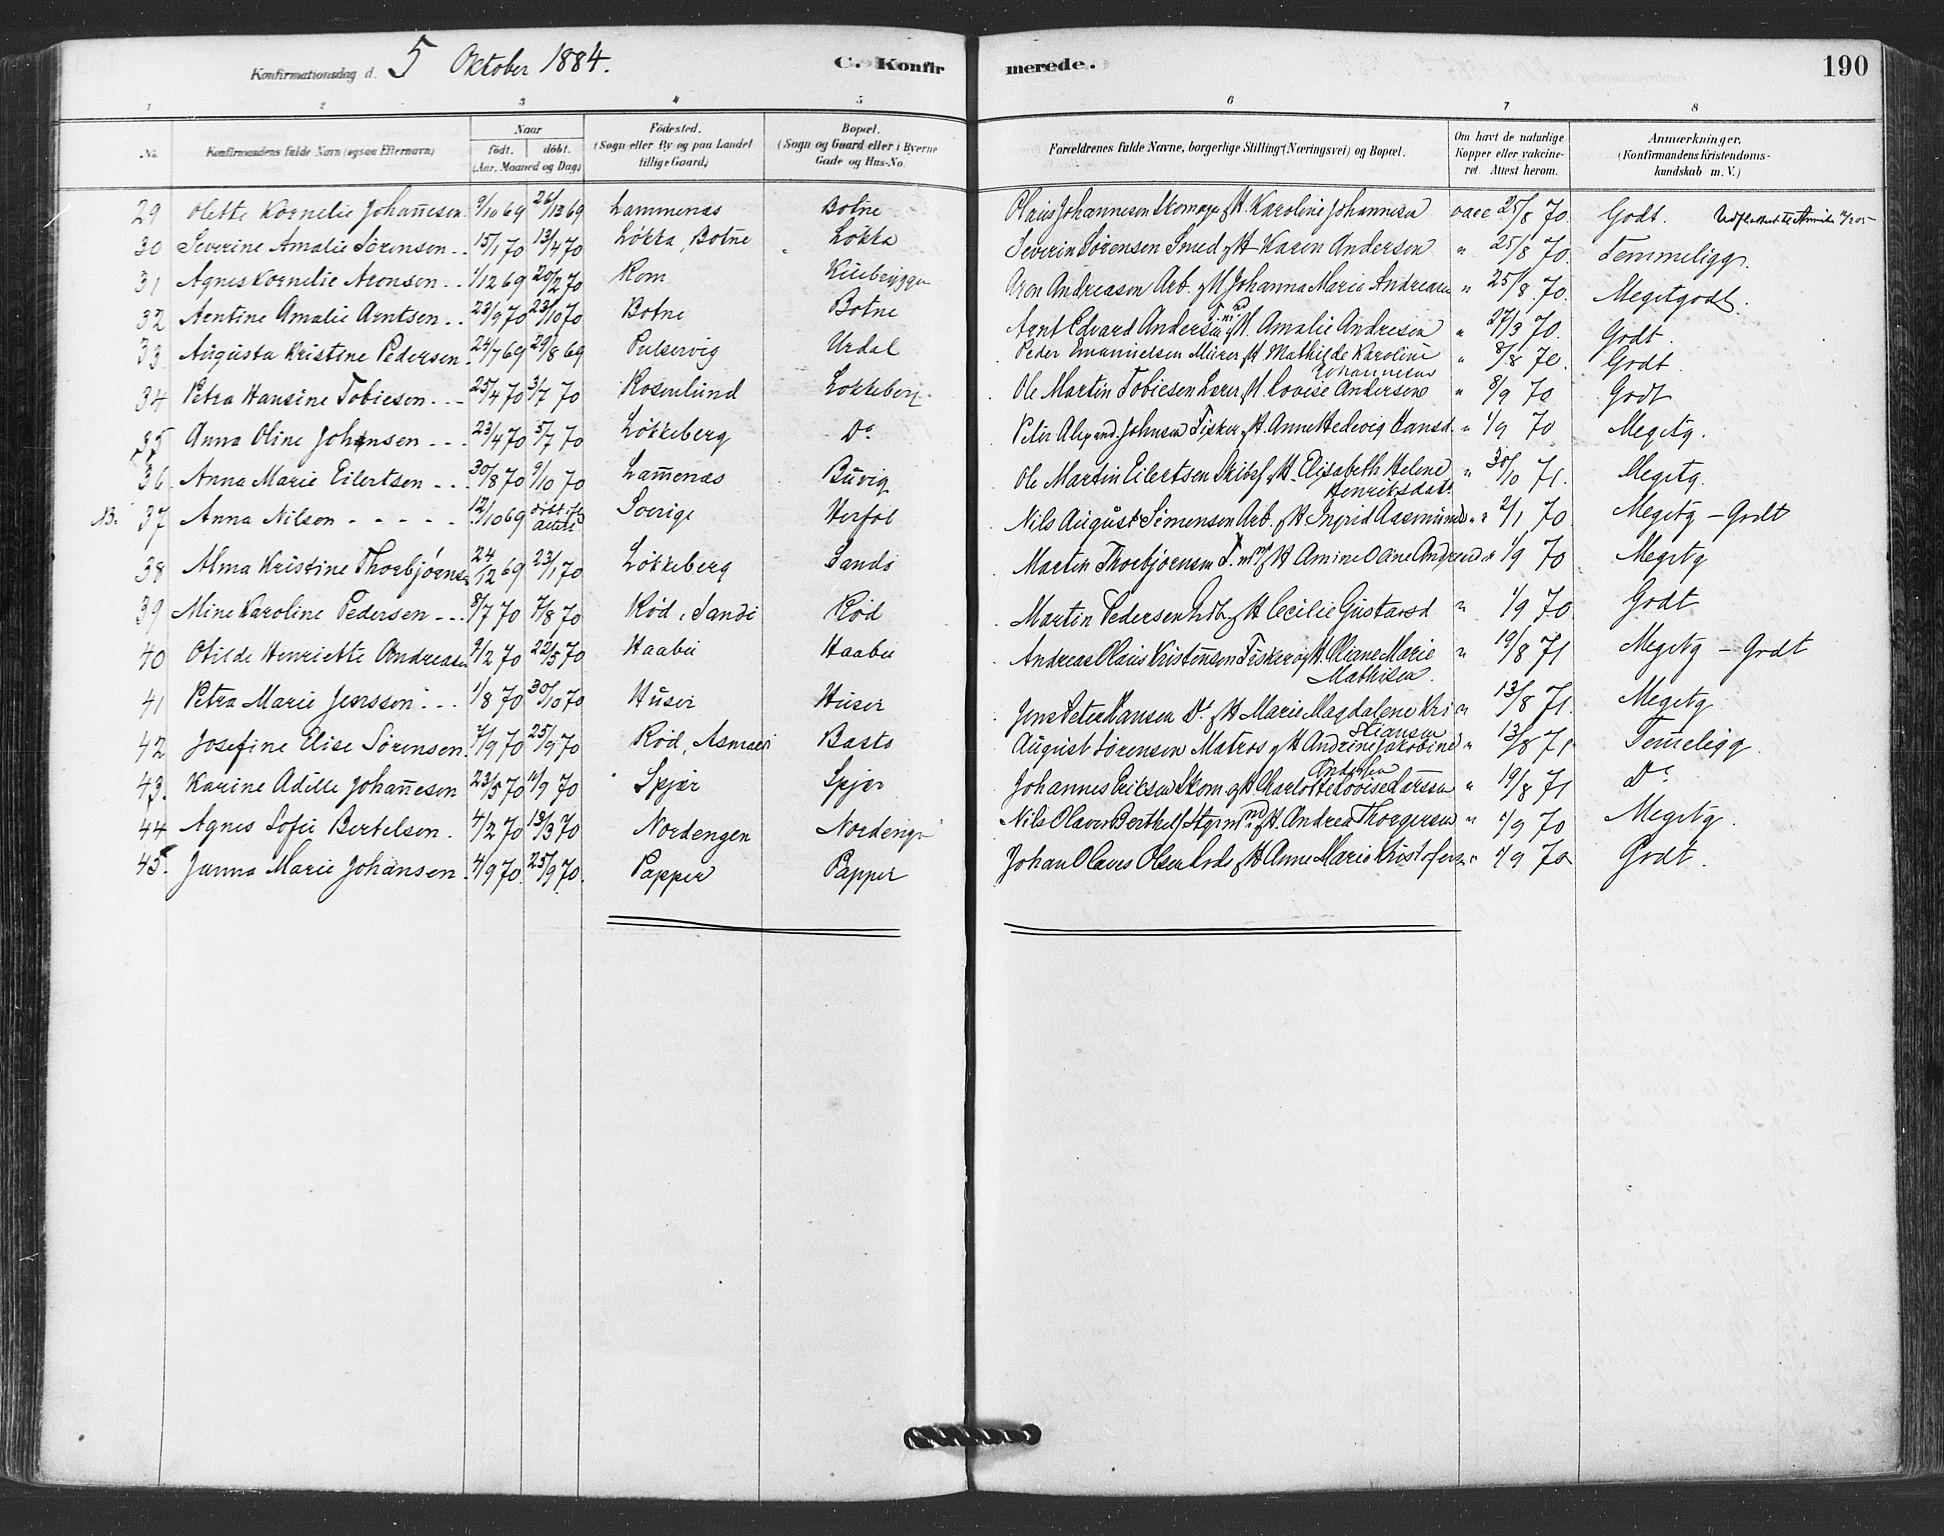 Konfirmationsdag d. 5 Oktober 1884. C. Konfirmerede. 190
1 2 3 4 5 6 7 8
No. Konfirmandens fulde Navn (ogsaa Efternavn) Naar födt. döbt. (Aar, Maaned og Dag) Födested. (Sogn eller By og paa Landet tillige Gaard) Bopæl. (Sogn og Gaard eller i Byerne Gade og Hus-No. Forældrenes fulde Navne, borgerlige Stilling (Næringsvei) og Bopæl. Om havt de naturlige Kopper eller vakcineret. Attest herom. Anmærkninger. (Konfirmandens Kristendomskundskab m. V.)
29 Olette Kornelie Johannesen 9/10 69 26/12 69 Lammenas Botne Olaus Johannesen Skomager & H. Karoline Johannesen vacc 25/8 70. Godt.
30 Severine Amalie Sørensen 15/1 70 13/4 70 Løkka, Botne Løkka Severin Sørensen Smed & H Karen Andersen " 25/8 70. Temmeligg.
31 Agnes Kornelie Aronsen 1/12 69 20/2 70 Rom Kilebryggen Aron Andreasen Arb. & H Johanna Marie Andreasen " 25/8 70. Megetgodt.
32 Arntine Amalie Arntsen 28/9 70 23/10 70 Botne Botne Arnt Edvard Andersen & H. Amalie Andresen " 27/3 70. Godt.
33 Augusta Kristine Pedersen 24/7 69 29/8 69 Pulservig Urdal Peder Emanuelsen Murer & H Mathilde Karoline Johannesen " 8/8 70. Godt.
34 Petra Hansine Tobiesen 25/4 70 3/7 70 Rosenlund Løkkeberg Ole Martin Tobiesen Lærer & H. Lovise Andersen " 8/9 70 Godt
35 Anna Oline Johnsen 23/4 70 5/7 70 Løkkeberg Do Peter Alexand. Johnsen Fisker & H. Anne Hedevig Hansd. " 1/9 70 Megetg.
36 Anna Marie Eilertsen 30/8 70 9/10 70 Lammenas Buvig Ole Martin Eilertsen Skibsf. & H. Elisabeth Helene Henriksdat. " 30/10 71. Megetg.
NB. 37 Anna Nilson 12/10 69 Sverige Herføl Nils August Simensen Arb. & H Ingrid Aasmunds " 2/1 70 Megetg - Godt
38 Alma Kristine Thorbjørnsen 24/12 69 23/1 70 Løkkeberg Sando Martin Thorbjørnsen & H Amine Oline Andersd " 1/9 70 Megetg
39 Mine Karoline Pedersen 8/7 70 7/8 70 Rød, Sandø Rød Martin Pedersen & H Cecilie Gustavsd " 1/9 70. Godt
40 Otilde Henriette Andreasen 9/2 70 22/5 70 Haabu Haabu Andreas Olaus Kristensen Fisker og H. Oliane Marie Mathisen. " 19/8 71 Megetg - Godt
41 Petra Marie Jensen 1/8 70 30/10 70 Huser Huser Jens Peter Hansen Do & H Marie Magdalene Kristiansen " 13/8 71. Megetg
42 Josefine Elise Sørensen 7/9 70 25/9 70 Rød, Asmalø Basto August Sørensen Matros & H Andrine Jakobine Andersen " 13/8 71 Temeligg.
43. Karine Adille Johannesen 23/5 70 11/9 70 Spjær Spjær Johannes Eriksen Skom. & H Charlotte Lovise Larsson " 19/8 71 Do
44 Agnes Sofie Bertelsen. 4/2 70 13/3 70 Nordengen Nordengen Nils Olaves Berthels. & H. Andrea Thorgersen " 1/9 70 Megetg.
45. Janna Marie Johansen 4/9 70 25/9 70. Papper Papper Johan Olaves Olsen Lods & H Anne Marie Kristofersen " 1/9 70 Godt.